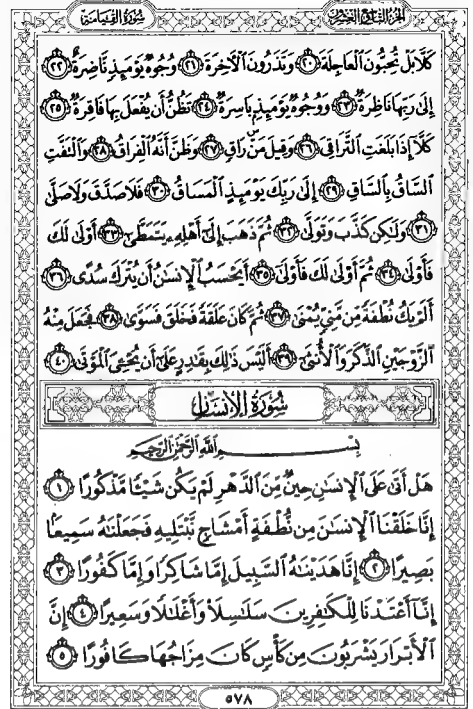 الجزء التاسع والعشرون
سورة القيامة
كَلَّا بَلْ تُحِبُّونَ ٱلْعَاجِلَةَ ٢٠ وَتَذَرُونَ ٱلْأَخِرَةَ ٢١ وُجُوهٌ يَوْمَئِذٍ نَّاضِرَةٌ ٢٢
إِلَىٰ رَبِّهَا نَاظِرَةٌ ٢٣ وَوُجُوهٌ يَوْمَئِذٍۭ بَاسِرَةٌ ٢٤ تَظُنُّ أَن يُفْعَلَ بِهَا فَاقِرَةٌ ٢٥
كَلَّآ إِذَا بَلَغَتِ ٱلتَّرَاقِيَ ٢٦ وَقِيلَ مَنْ رَاقٍ ٢٧ وَظَنَّ أَنَّهُ ٱلْفِرَاقُ ٢٨ وَٱلْتَفَّتِ
ٱلسَّاقُ بِٱلسَّاقِ ٢٩ إِلَىٰ رَبِّكَ يَوْمَئِذٍ ٱلْمَسَاقُ ٣٠ فَلَا صَدَّقَ وَلَا صَلَّىٰ
٣١ وَلَٰكِن كَذَّبَ وَتَوَلَّىٰ ٣٢ ثُمَّ ذَهَبَ إِلَىٰٓ أَهْلِهِۦ يَتَمَطَّىٰٓ ٣٣ أَوْلَىٰ لَكَ
فَأَوْلَىٰ ٣٤ ثُمَّ أَوْلَىٰ لَكَ فَأَوْلَىٰٓ ٣٥ أَيَحْسَبُ ٱلْإِنسَٰنُ أَن يُتْرَكَ سُدًى ٣٦
أَلَمْ يَكُ نُطْفَةً مِّن مَّنِيٍّ يُمْنَىٰ ٣٧ ثُمَّ كَانَ عَلَقَةً فَخَلَقَ فَسَوَّىٰ ٣٨ فَجَعَلَ مِنْهُ
ٱلزَّوْجَيْنِ ٱلذَّكَرَ وَٱلْأُنثَىٰٓ ٣٩ أَلَيْسَ ذَٰلِكَ بِقَٰدِرٍ عَلَىٰٓ أَن يُحْـِۧيَ ٱلْمَوْتَىٰ ٤٠
سورة الإنسان
بِسْمِ ٱللَّهِ ٱلرَّحْمَٰنِ ٱلرَّحِيمِ
هَلْ أَتَىٰ عَلَى ٱلْإِنسَٰنِ حِينٌ مِّنَ ٱلدَّهْرِ لَمْ يَكُن شَيْـًٔا مَّذْكُورًا ١
إِنَّا خَلَقْنَا ٱلْإِنسَٰنَ مِن نُّطْفَةٍ أَمْشَاجٍ نَّبْتَلِيهِ فَجَعَلْنَٰهُ سَمِيعًۢا
بَصِيرًا ٢ إِنَّا هَدَيْنَٰهُ ٱلسَّبِيلَ إِمَّا شَاكِرًا وَإِمَّا كَفُورًا ٣
إِنَّآ أَعْتَدْنَا لِلْكَٰفِرِينَ سَلَٰسِلَا۟ وَأَغْلَٰلًا وَسَعِيرًا ٤ إِنَّ
ٱلْأَبْرَارَ يَشْرَبُونَ مِن كَأْسٍ كَانَ مِزَاجُهَا كَافُورًا ٥
٥٧٨